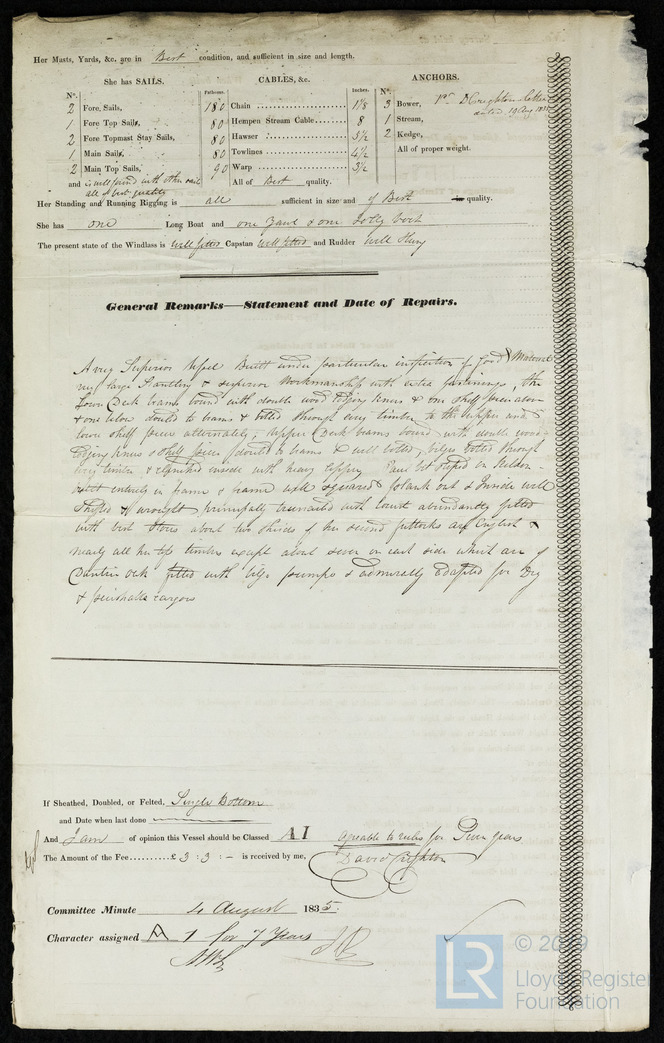 Her Masts, Yards, &c. are in Best condition, and sufficient in size and length.
She has SAILS. CABLES, &c. ANCHORS.
N°. Fathoms. Inches. N°.
2 Fore, Sails, 180 Chain 1 1/8 3 Bower, pr D Crighton letter
dated 19 Aug 1835
1 Fore Top Sails, 80 Hempen Stream Cable 8 1 Stream,
2 Fore Topmast Stay Sails, 80 Hawser 5½ 2 Kedge,
1 Main Sails, 80 Towlines 4½ All of proper weight.
2 Main Top Sails, 90 Warp 3½
and is well found with other sails All of Best quality.
all of best quality
Her Standing and Running Rigging is all sufficient in size and of Best in quality.
She has one Long Boat and one Yawl & one Jolly boat
The present state of the Windlass is well fitted Capstan well fitted and Rudder well Hung
General Remarks—Statement and Date of Repairs.
A very Superior Vessel Built under particular inspection of Good Material
very large Scantling & superior Workmanship with extra fastenings, the
Lower Deck beams bound with double wood lodging knees & one shelf piece above
& one below doweled to beams & bolted through every timber to the upper and
lower shelf piece alternately, Upper Deck beams bound with double wood
lodging knees & shelf piece doweled to beams & well bolted, bilges bolted through
every timber & clenched inside with heavy Copper
built entirely in frame & frame well squared plank out & Inside well
shifted & wrought principally treenailed with locust abundantly fitted
with best Stores about two thirds of her second futtocks are English &
nearly all her top timbers except about seven on each side which are of
Dantzic oak fitted with bilge pumps & admirably adapted for Dry
& perishable cargoes
If Sheathed, Doubled, or Felted, Single Bottom
and Date when last done
And I am of opinion this Vessel should be Classed A1 agreable to rules for Seven years
The Amount of the Fee £ 3 : 3 : - is received by me, David Crighton
Committee Minute 4 August 1835.
Character assigned A 1 for 7 Years
LR
© 2019
Lloyd's Register
Foundation